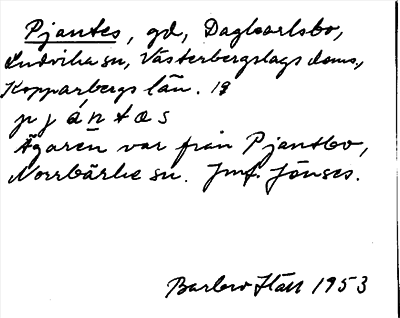 Pjantes, gd, Dagkarlsbo,
Ludvika sn, Västerbergslags doms,
Kopparbergs län. 19
p j á n t a s
Ägaren var från Pjantbo,
Norrbärke sn. Jmf. Jönses.
Barbro Häll 1953